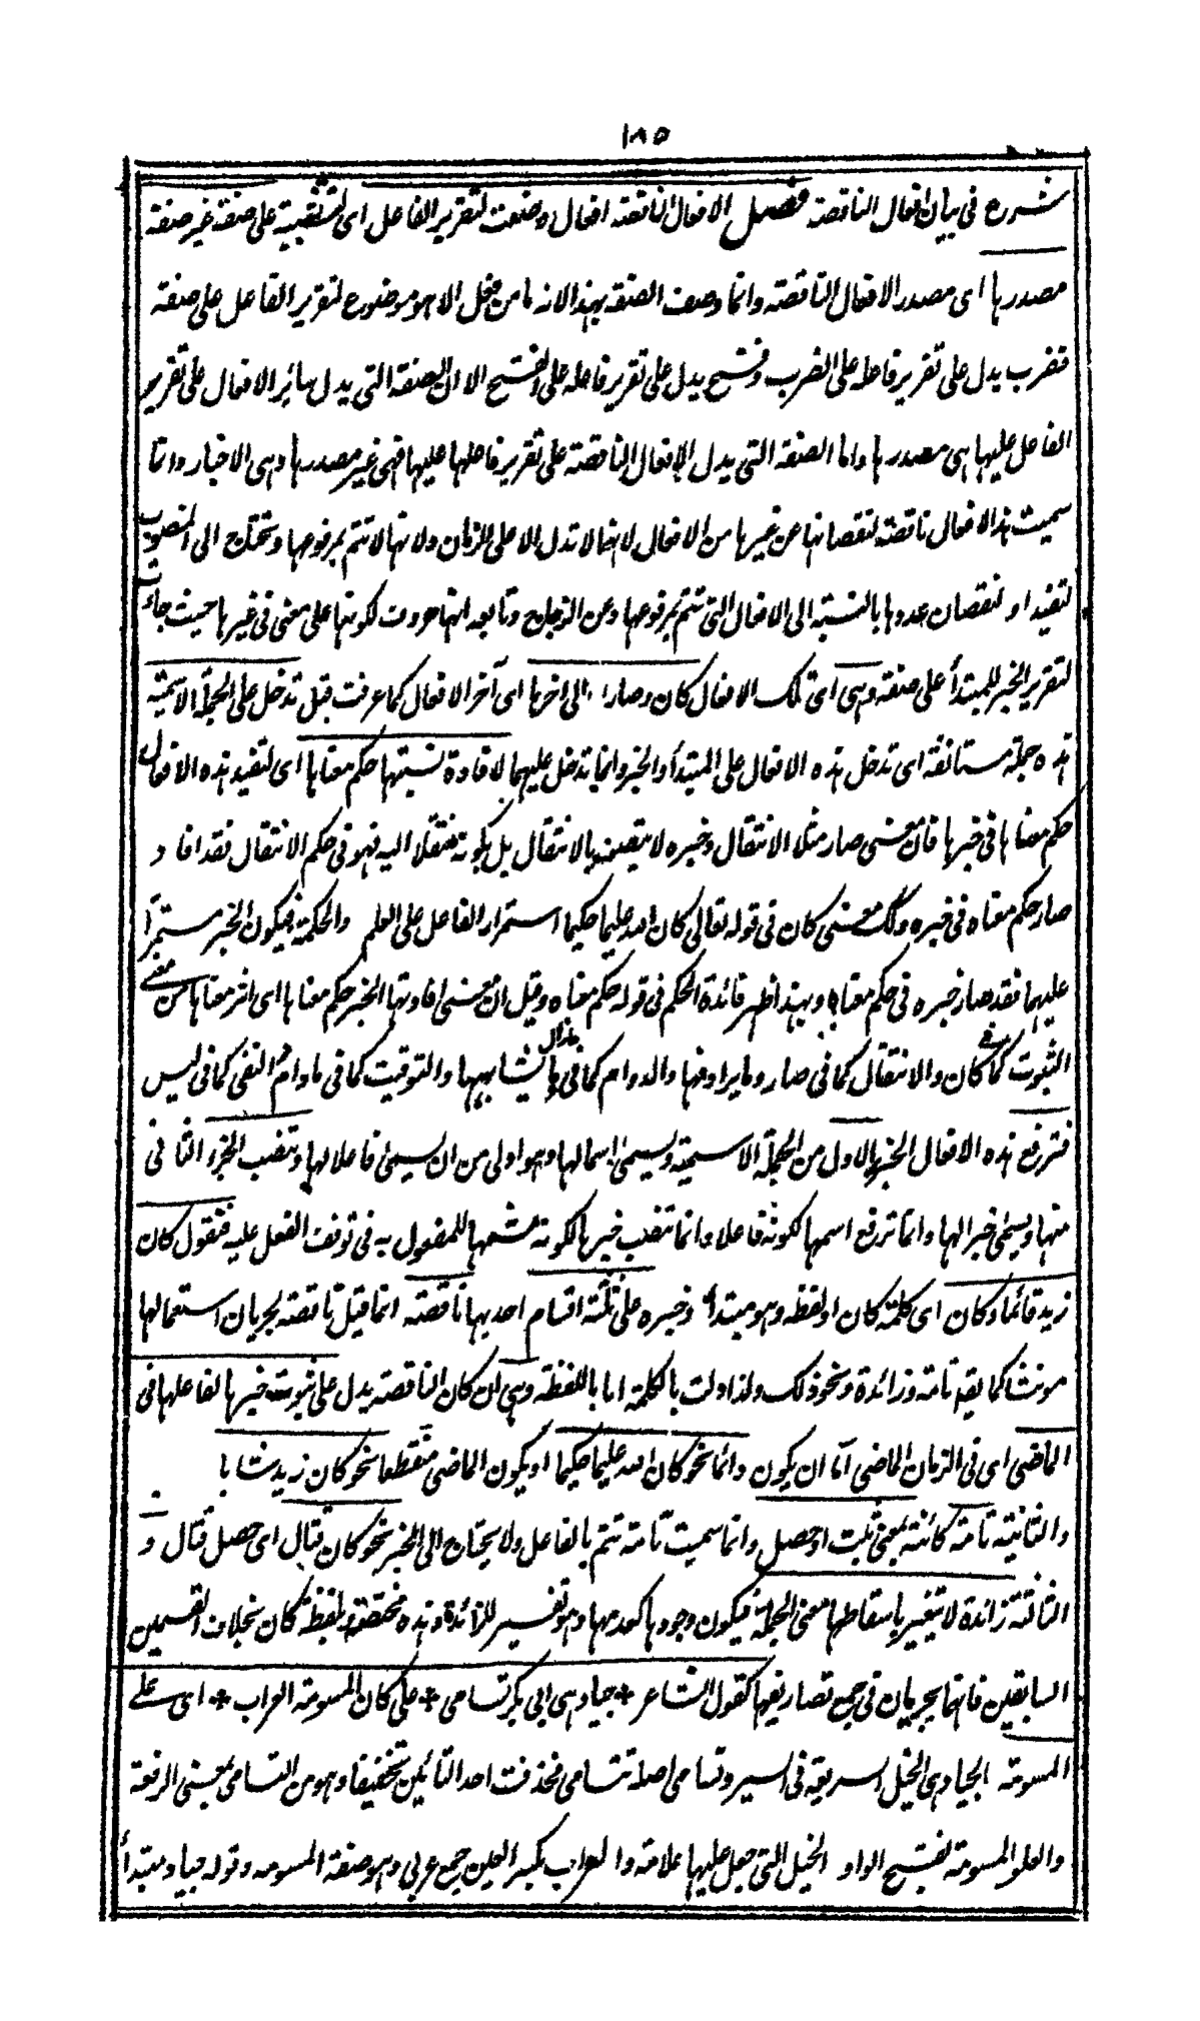 ١٨٥
شرع فى بيان افعال الناقصة فصل الافعال الناقصة افعال وضعت لتقرير الفاعل اى لتثبيته على صفة غير صفة
مصدرها اى مصدر الافعال الناقصة وانما وصف الصفة بهذا لانه ما من فعل الا هو موضوع لتقرير الفاعل على صفة
فضرب يدل على تقرير فاعله على الضرب وفتح يدل على تقرير فاعله على الفتح الا ان الصفة التى يدل سائر الافعال على تقرير
الفاعل عليها هى مصدرها واما الصفة التى يدل الافعال الناقصة على تقرير فاعلها عليها فهى غير مصدرها وهى الاخبار وانما
سميت هذا الافعال ناقصة لنقصانها عن غيرها من الافعال لانها لا تدل الا على الزمان ولانها لا تتم بمرفوعها وتحتاج الى المنصوب
لتفيد او لنقصان عددها بالنسبة الى الافعال التى تتم بمرفوعها وعن الزجاج وتابعه انها حروف لكونها على معنى فى غيرها حيث جاءت
لتقرير الخبر للمبتدأ على صفة وهى اى تلك الافعال كان وصار الى اخرها اى آخر الافعال كما عرفت قبل تدخل على الجملة الاسمية
هذه جملة مستانفة اى تدخل هذه الافعال على المبتدأ والخبر وانما تدخل عليهما لافادة نسبتها حكم معناها اى لتفيد هذه الافعال
حكم معناها فى خبرها فان معنى صار مثلا الانتقال وخبره لا يتصف بالانتقال بل بكونه منتقلا اليه فهو فى حكم الانتقال فقد افاد
صار حكم معناه فى خبره وكك معنى كان فى قوله تعالى كان الله عليما حكيما استمرار الفاعل على العلم والحكمة فيكون الخبر مستمرا
عليهما فقد صار خبره فى حكم معناه وبهذا ظهر فائدة الحكم فى قوله حكم معناه وقيل ان معنى افادتها الخبر حكم معناها اى اثر معناها من معنى
الثبوت كما فى كان والانتقال كما فى صار وما يرادفها والدوام كما فى ما زال وما يشابهها والتوقيت كما فى ما دام والنفى كما فى ليس
فترفع هذه الافعال الخبر الاول من الجملة الاسمية ويسمى اسما لها وهو اولى من ان يسمى فاعلا لها وتنصب الجزء الثانى
منها ويسمى خبرا لها وانما ترفع اسمها لكونه فاعلا وانما تنصب خبرها لكونه مشبها للمفعول به فى توقف الفعل عليه فتقول كان
زيد قائما وكان اى كلمة كان او لفظه وهو مبتدأ وخبره على ثلثة اقسام احديها ناقصة انما قيل ناقصة لجريان استعمالها
مونثا كما يقم تامة وزائدة ونحو ذلك ولذا ولت بالكلمة اما باللفظة وهى ان كان الناقصة يدل على ثبوت خبرها لفاعلها فى
الماضى اى فى الزمان الماضى اما ان يكون دائما نحو كان الله عليما حكيما او يكون الماضى منقطعا نحو كان زيد شابا
والثانية تامة كائنة بمعنى ثبت او حصل وانما سميت تامة تتم بالفاعل ولا يحتاج الى الخبر نحو كان قتال اى حصل قتال و
الثالثة زائدة لا يتغير باسقاطها معنى الجملة فيكون وجودها كعدمها وهو تفسير للزائدة وهذه مختصة بلفظة كان بخلاف القسمين
السابقين فانها يجريان فى جميع تصاريفها كقول الشاعر * جياد بنى ابى بكر تسامى * على كان المسومة العراب * اى على
المسومة الجياد هى الخيل السريعة فى السير وتسامى اصله تتسامى فحذفت احد التائين تخفيفا وهو من التسامى بمعنى الرفعة
والعلو المسومة بفتح الواو الخيل التى جعل عليها علامة والعراب بكسر العين جمع عربى وهو صفة المسومه وقوله جياد مبتدأ